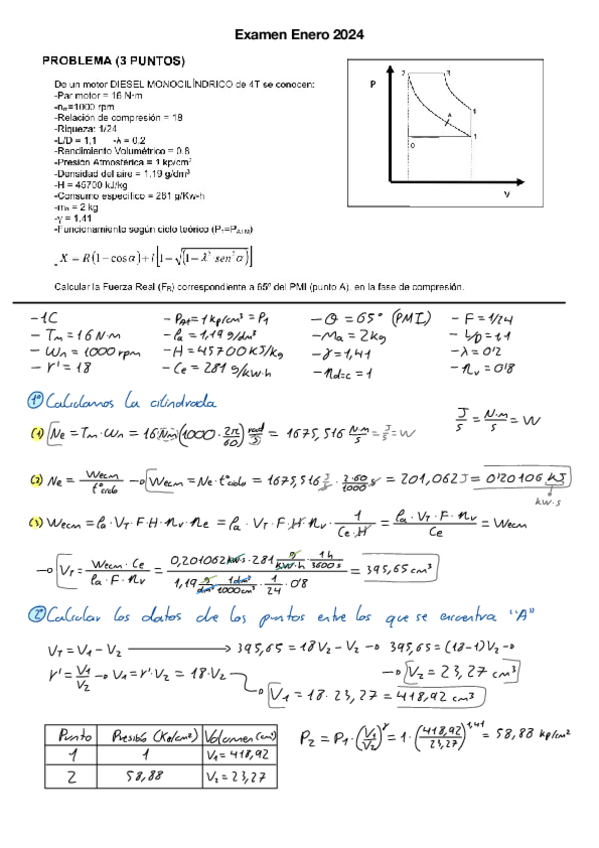 Examen Enero 2024
PROBLEMA (3 PUNTOS)
De un motor DIESEL MONOCILÍNDRICO de 4T se conocen:
-Par motor = 16 N·m
-nm=1000 rpm
-Relación de compresión = 18
-Riqueza: 1/24
-L/D = 1,1 -λ = 0,2
-Rendimiento Volumétrico = 0.8
-Presión Atmosférica = 1 kp/cm²
-Densidad del aire = 1,19 g/dm³
-H = 45700 kJ/kg
-Consumo específico = 281 g/Kw-h
-mₐ = 2 kg
-γ = 1,41
-Funcionamiento según ciclo teórico (P₁=PATM)
X = R(1-cosα)+l[1-√(1-λ² sen²α)]
P
2
3
4
A
1
0
V
Calcular la Fuerza Real (FR) correspondiente a 65º del PMI (punto A), en la fase de compresión.
-1C
-Tm=16 N·m
-Wn=1000 rpm
-r'=18
-PAt=1kp/cm²=P1
-ρa=1,19 g/dm³
-H=45700 KJ/kg
-Ce=281 g/kw·h
-θ=65° (PMI)
-Ma=2kg
-γ=1,41
-nd=c=1
-F=1/24
-L/D=1,1
-λ=0'2
-ηv=0'8
1º Calculamos la cilindrada
(1) Ne = Tm·Wn = 16 Nm(1000·2π/60) rad/s = 1675,516 N·m/s = J/s = W
J/s = N·m/s = W
(2) Ne = Wecm/tºciclo → Wecm = Ne·tºciclo = 1675,516 J/s · 2·60/1000 s = 201,062J = 0'20106 KJ
kw·s
(3) Wecm = ρa·VT·F·H·ηv·ηe = ρa·VT·F·H·ηv·1/(Ce·H) = ρa·VT·F·ηv/Ce = Wecm
→ VT = Wecm·Ce/(ρa·F·ηv) = 0,201062 kw·s·281 g/kw·h·1h/3600s / (1,19 g/dm³·1dm³/1000cm³·1/24·0'8) = 395,65 cm³
2º Calcular los datos de los puntos entre los que se encuentra "A"
VT = V1 - V2 → 395,65 = 18V2 - V2 → 395,65 = (18-1)V2 →
→ V2 = 23,27 cm³
r' = V1/V2 → V1 = r'·V2 = 18·V2 → V1 = 18·23,27 = 418,92 cm³
Punto Presión (Kp/cm²) Volumen (cm³)
1 1 V1 = 418,92
2 58,88 V2 = 23,27
P2 = P1·(V1/V2)^γ = 1·(418,92/23,27)^1,41 = 58,88 kp/cm²